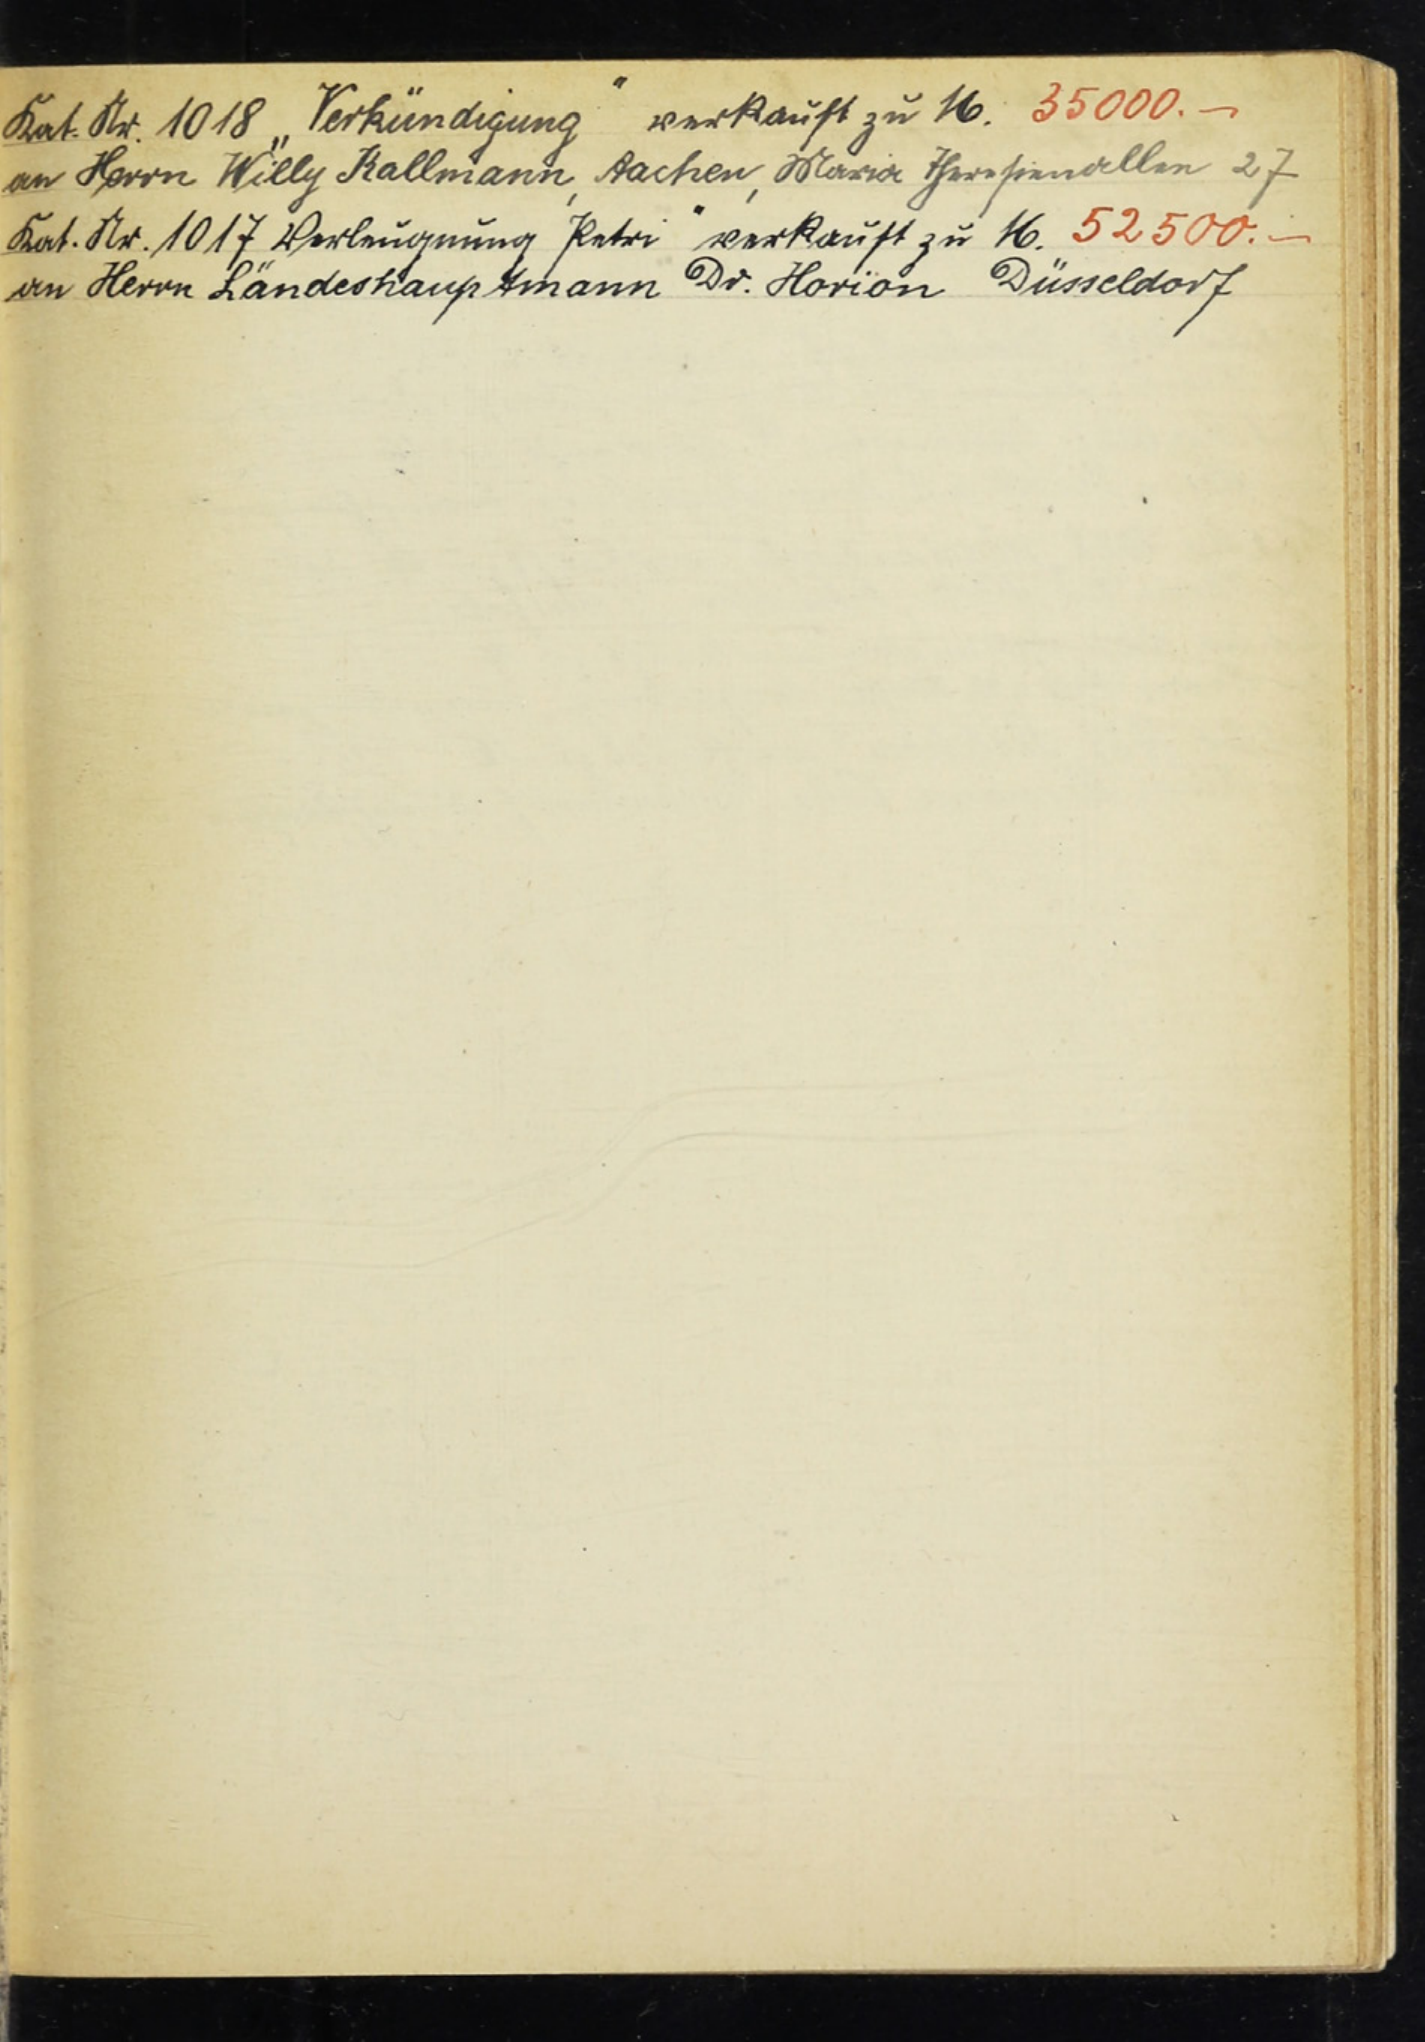 Kat. Nr. 1018 „Verkündigung“ verkauft zu M. 35000.—
an Herrn Willy Kallmann, Aachen, Maria Theresienallee 27
Kat. Nr. 1017 Verleugnung Petri“ verkauft zu M. 52500.—
an Herrn Landeshauptmann Dr. Horion Düsseldorf